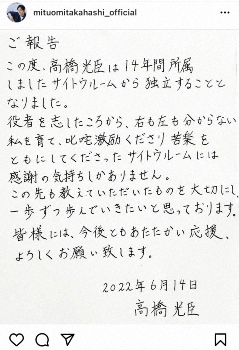 mitumitakahashi_official
ご報告
この度、高橋光臣は14年間所属
しましたサイトウルームから独立することと
なりました。
役者を志したころから、右も左も分からない
私を育て、叱咤激励くださり苦楽を
ともにしてくださったサイトウルームには
感謝の気持ちしかありません。
この先も教えていただいたものを大切にし、
一歩ずつ歩んでいきたいと思っております。
皆様には、今後ともあたたかい応援、
よろしくお願い致します。
2022年6月14日
高橋光臣